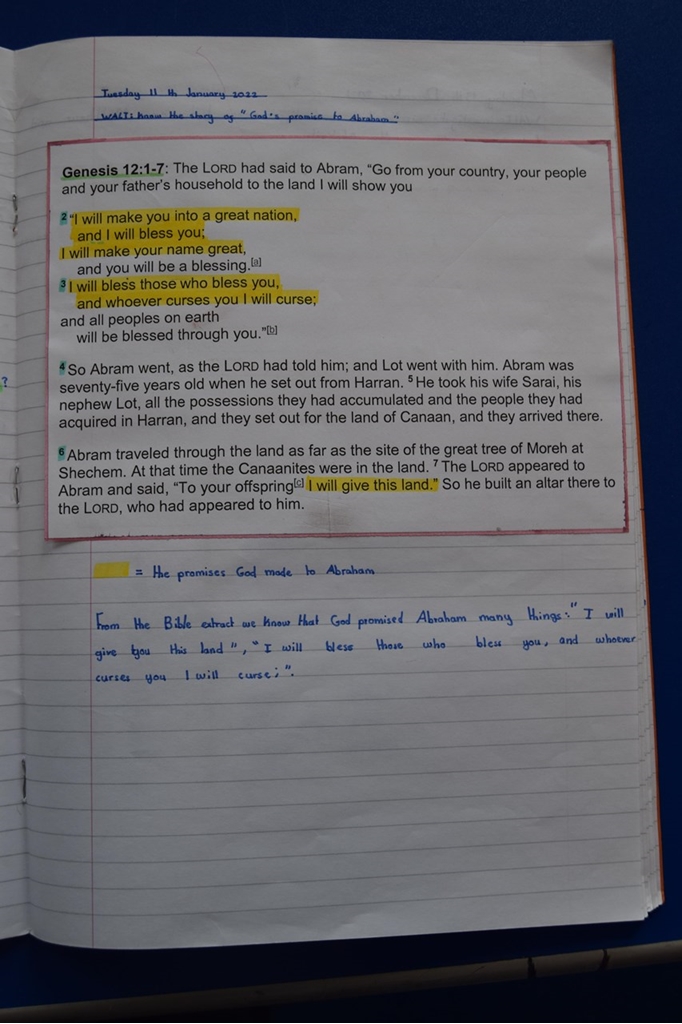 Tuesday 11th January 2022
WALT: know the story of "God's promise to Abraham"
Genesis 12:1-7: The LORD had said to Abram, “Go from your country, your people
and your father’s household to the land I will show you
2“I will make you into a great nation,
and I will bless you;
I will make your name great,
and you will be a blessing.[a]
3I will bless those who bless you,
and whoever curses you I will curse;
and all peoples on earth
will be blessed through you.”[b]
4So Abram went, as the LORD had told him; and Lot went with him. Abram was
seventy-five years old when he set out from Harran. 5He took his wife Sarai, his
nephew Lot, all the possessions they had accumulated and the people they had
acquired in Harran, and they set out for the land of Canaan, and they arrived there.
6Abram traveled through the land as far as the site of the great tree of Moreh at
Shechem. At that time the Canaanites were in the land. 7The LORD appeared to
Abram and said, “To your offspring[c] I will give this land.” So he built an altar there to
the LORD, who had appeared to him.
= the promises God made to Abraham
From the Bible extract we know that God promised Abraham many things: "I will
give you this land", "I will bless those who bless you, and whoever
curses you I will curse;".
?